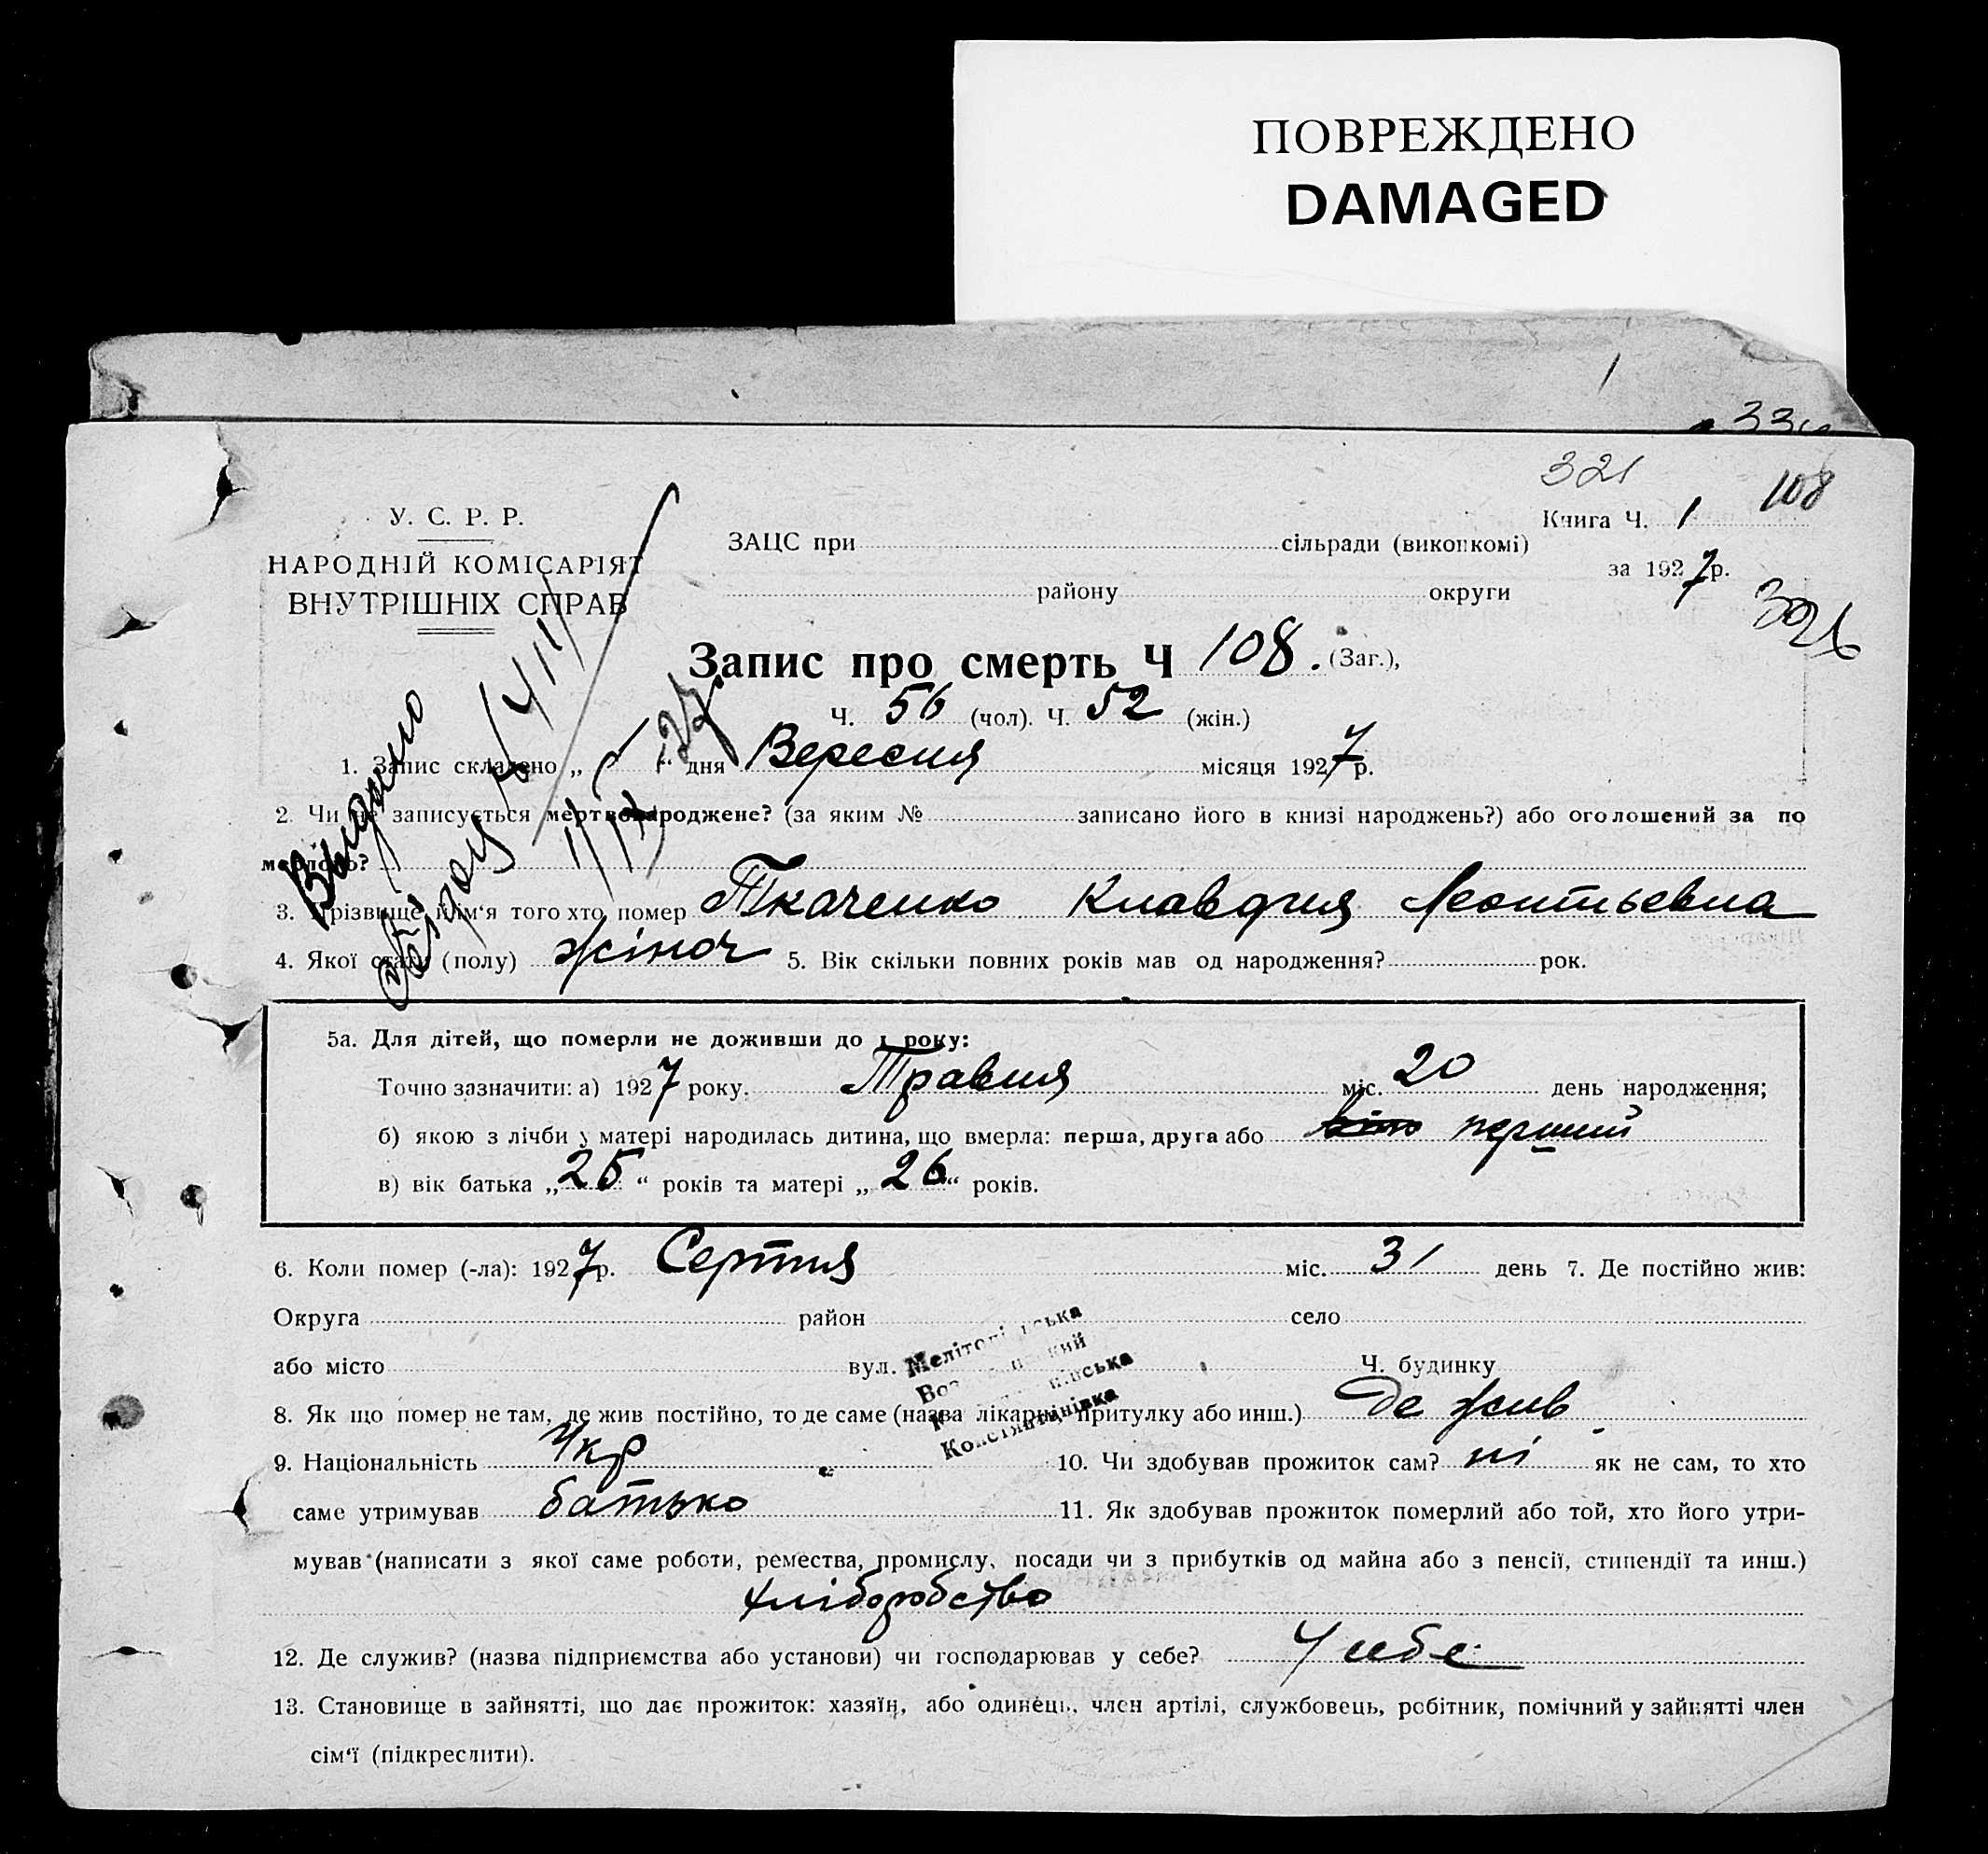 ПОВРЕЖДЕНО
DAMAGED
1
334
321
108
У. С. Р. Р.
НАРОДНІЙ КОМІСАРІЯТ
ВНУТРІШНІХ СПРАВ
Книга Ч. 1
ЗАЦС при сільради (виконкомі)
за 1927 р.
району округи
Запис про смерть Ч 108. (Заг.),
Ч. 56 (чол). Ч. 52 (жін.)
1. Запис складено „ 1 “ дня Вересня місяця 1927 р.
2. Чи не записується мертвонароджене? (за яким № записано його в книзі народжень?) або оголошений за по
мерлого?
Видано
3. Прізвище й им‘я того хто помер Ткаченко Клавдия Леонтьевна
4. Якої стати (полу) жіноч 5. Вік скільки повних років мав од народження? рок.
5а. Для дітей, що померли не доживши до 1 року:
Точно зазначити: а) 1927 року. Травня міс. 20 день народження;
б) якою з лічби у матері народилась дитина, що вмерла: перша, друга або перший
в) вік батька „ 25 “ років та матері „ 26 “ років.
6. Коли помер (-ла): 1927 р. Серпня міс. 31 день 7. Де постійно жив:
Округа район село
або місто вул. Ч. будинку
Константинівка
8. Як що помер не там, де жив постійно, то де саме (назва лікарні, притулку або инш.) Де жив
9. Національність Укр 10. Чи здобував прожиток сам? ні як не сам, то хто
саме утримував батько 11. Як здобував прожиток померлий або той, хто його утри-
мував (написати з якої саме роботи, ремества, промислу, посади чи з прибутків од майна або з пенсії, стипендії та инш.)
хліборобство
12. Де служив? (назва підприємства або установи) чи господарював у себе? У себе
13. Становище в зайнятті, що дає прожиток: хазяїн, або одинець, член артілі, службовець, робітник, помічний у зайнятті член
сім‘ї (підкреслити).